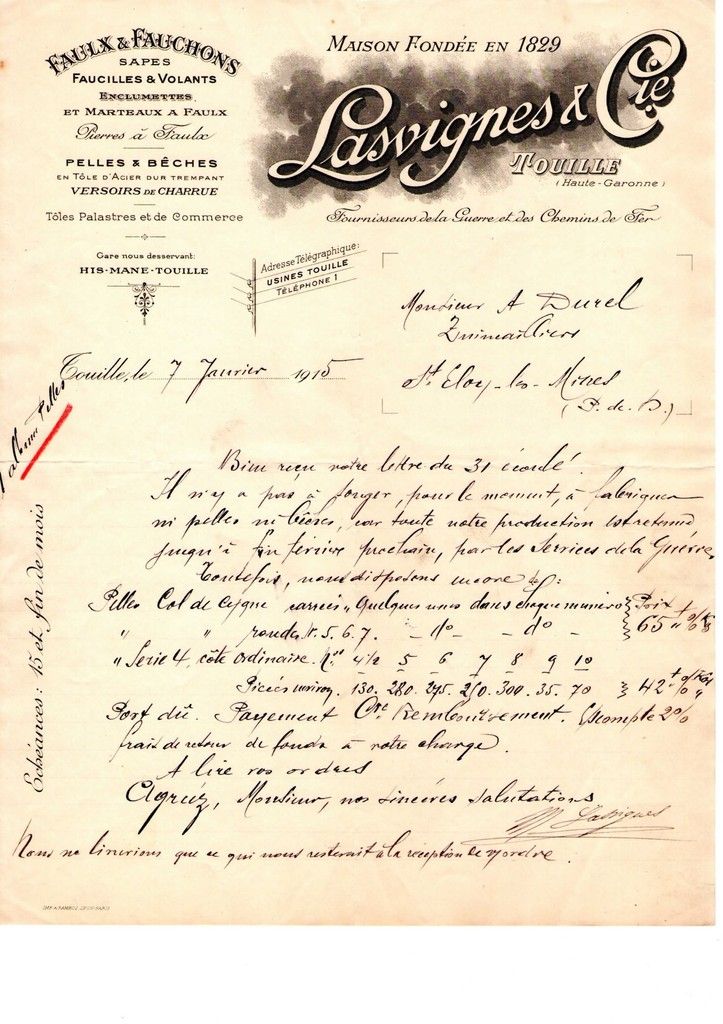 FAULX & FAUCHONS
SAPES
FAUCILLES & VOLANTS
ENCLUMETTES
ET MARTEAUX A FAULX
Pierres à Faulx
PELLES & BÊCHES
EN TÔLE D'ACIER DUR TREMPANT
VERSOIRS DE CHARRUE
Tôles Palastres et de Commerce
Gare nous desservant:
HIS-MANE-TOUILLE
MAISON FONDÉE EN 1829
Lasvignes & Cie
TOUILLE
(Haute-Garonne)
Fournisseurs de la Guerre et des Chemins de Fer
Adresse Télégraphique:
USINES TOUILLE
TÉLÉPHONE 1
Monsieur A Durel
St Eloy-les-Mines
(P. de D.)
Touille, le 7 Janvier 1915
Pelles
Echéances: 15 et fin de mois
Bien reçu votre lettre du 31 écoulé.
Il n'y a pas à songer, pour le moment, à fabriquer
ni pelles ni bêches, car toute notre production est retenue
jusqu'à fin février prochain, par les Services de la Guerre,
Toutefois, nous disposons encore de:
Pelles Col de Cygne carrées " Quelques unes dans chaque numéro } Prix
" " rondes N. 5. 6. 7. - do - - do - } 65
" Serie 4, côte ordinaire. Nos 4½ 5 6 7 8 9 10
Pièces environ. 130. 280. 275. 250. 300. 35. 70 } 42
Port dû. Payement Cre Remboursement. Escompte 2%
frais de retour de fonds à votre charge.
A lire vos ordres
Agréez, Monsieur, nos sincères salutations
Lasvignes
Nous ne livrerions que ce qui nous resterait à la réception de v/ordre.